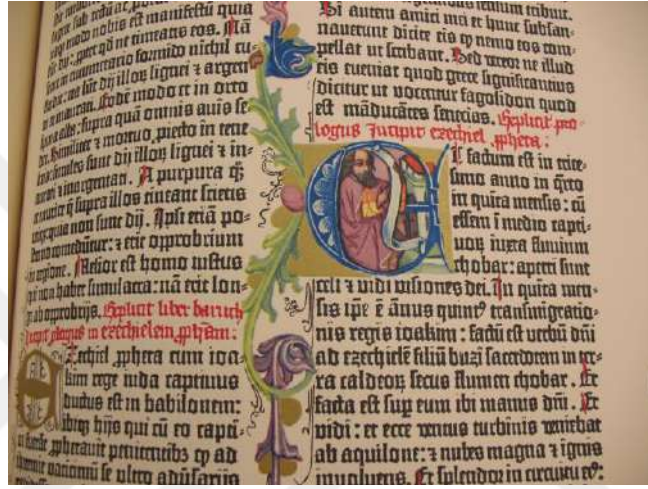 modo nobis est manifestu quia
ne timeatis eos. Nā
in cucumerario formido nichil cu-
ita sūt dij illoꝝ lignei ⁊ argen
⁊ inaurati. Eodē modo et in orto
alba: supra quā omnis auis se-
Similiter ⁊ mortuo ꝓiecto in tene
similes sunt dij illoꝝ lignei ⁊ in-
⁊ inargentati. A purpura qꝫ
q̄ supra illos tineant scietis
quia non sunt dij. Ipsi etiā po-
comeduntur: ⁊ erit opprobrium
in regione. Melior est homo iustus
qui non habet simulacra: nā erit lon-
ab opprobrijs. Explicit liber baruch
incipit ꝓlogus in ezechielem ꝓphetam.
Ezechiel ꝓpheta cum ioa-
kim rege iuda captiuus
ductus est in babilonem:
ibiqꝫ hijs qui cū eo capti-
ꝓphetauit penitentibꝫ qꝫ ad
uaticiniū se vltro aduersarijs
Si autem amici mei et hunc subsan-
nauerunt dicite eis qꝫ nemo eos com-
pellat ut scribant. Sed vereor ne illud
eis eueniat quod grece significantius
dicitur ut vocentur fagolidori quod
est māducātes senecias. Explicit pro-
logus Incipit ezechiel ꝓpheta.
Et factum est in trice-
simo anno in q̄rto
in quīta mensis: cū
essem ī medio capti-
uoꝝ iuxta fluuium
chobar: aperti sunt
celi ⁊ vidi visiones dei. In quīta men-
sis ip̄e ē ānus quintꝰ transmigratio-
nis regis ioakim: factū est verbū dn̄i
ad ezechielē filiū buzi sacerdotem in ter-
ra caldeoꝝ secus flumen chobar. Et
facta est sup eum ibi manus dn̄i. Et
vidi: et ecce ventus turbinis veniebat
ab aquilone: ⁊ nubes magna ⁊ ignis
inuoluens. Et splendor in circuitu eiꝰ: